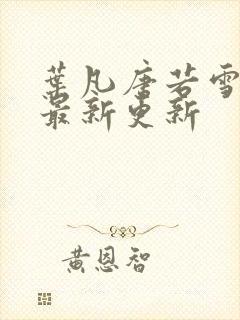 葉凡唐若雪
最新更新
黃恩智